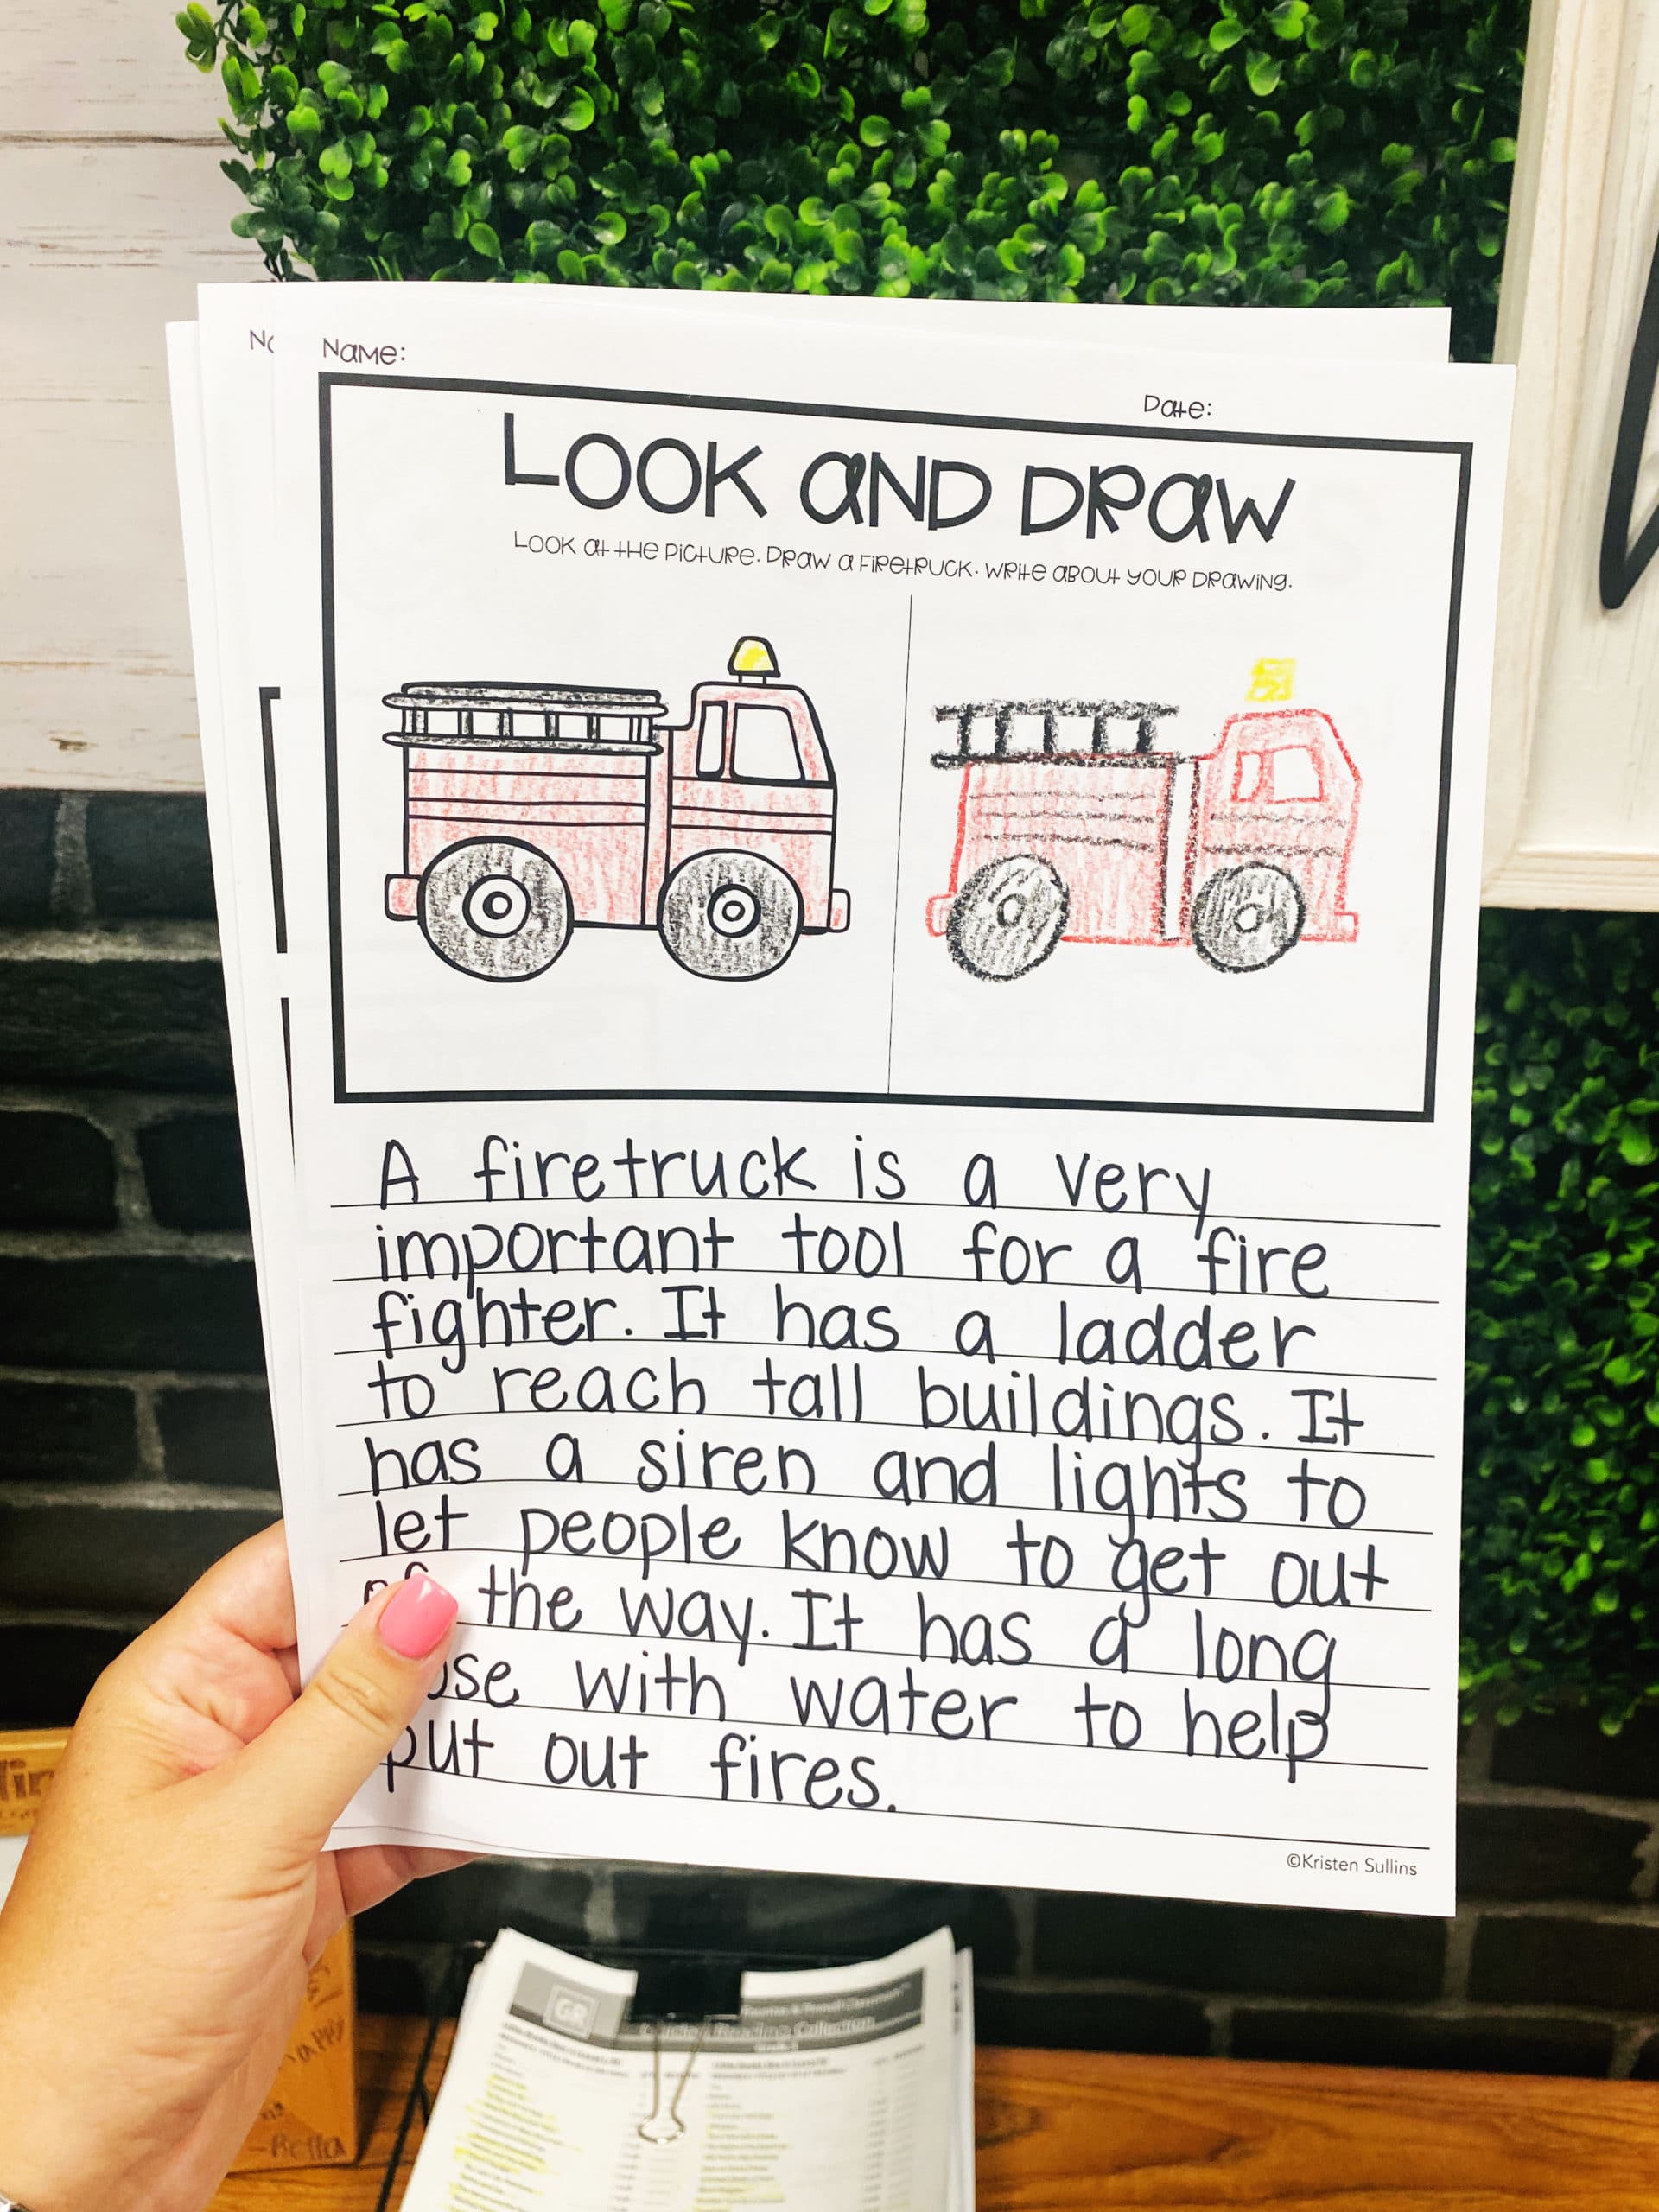 Name:
Date:
LOOK AND DRAW
LOOK at the Picture. Draw a firetruck. Write about your drawing.
A firetruck is a very
important tool for a fire
fighter. It has a ladder
to reach tall buildings. It
has a siren and lights to
let people know to get out
of the way. It has a long
with water to help
put out fires.
©Kristen Sullins
GR
Reading Collection
-Bella